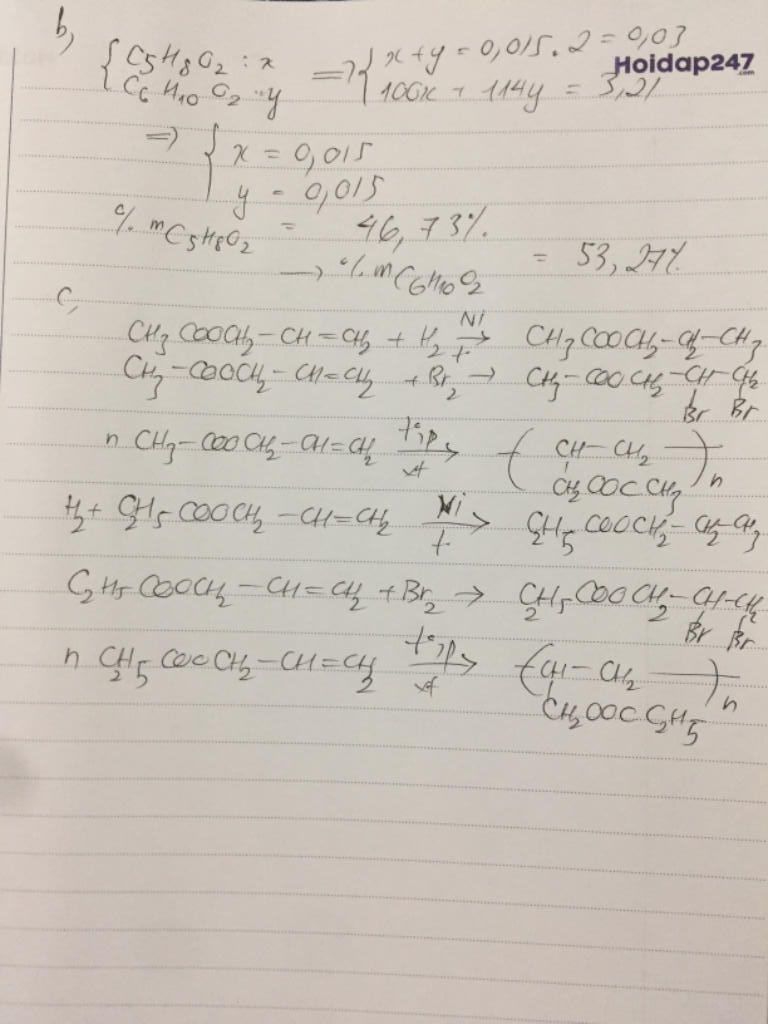 b,
{ C5H8O2 : x => { x + y = 0,015 . 2 = 0,03
Hoidap247
.com
C6H10O2 : y 100x + 114y = 3,21
=> { x = 0,015
y = 0,015
% mC5H8O2 = 46,73%.
→ % mC6H10O2 = 53,27%
c,
CH3COOCH2-CH=CH2 + H2 Ni→t CH3COOCH2-CH2-CH3
CH3-COOCH2-CH=CH2 + Br2 → CH3-COOCH2-CH-CH2
Br Br
n CH3-COOCH2-CH=CH2 t°,p→xt ( CH-CH2 )n
CH2OOCCH3
H2 + C2H5COOCH2-CH=CH2 Ni→t C2H5COOCH2-CH2-CH3
C2H5COOCH2-CH=CH2 + Br2 → C2H5COOCH2-CH-CH2
Br Br
n C2H5COOCH2-CH=CH2 t°,p→xt ( CH-CH2 )n
CH2OOCC2H5